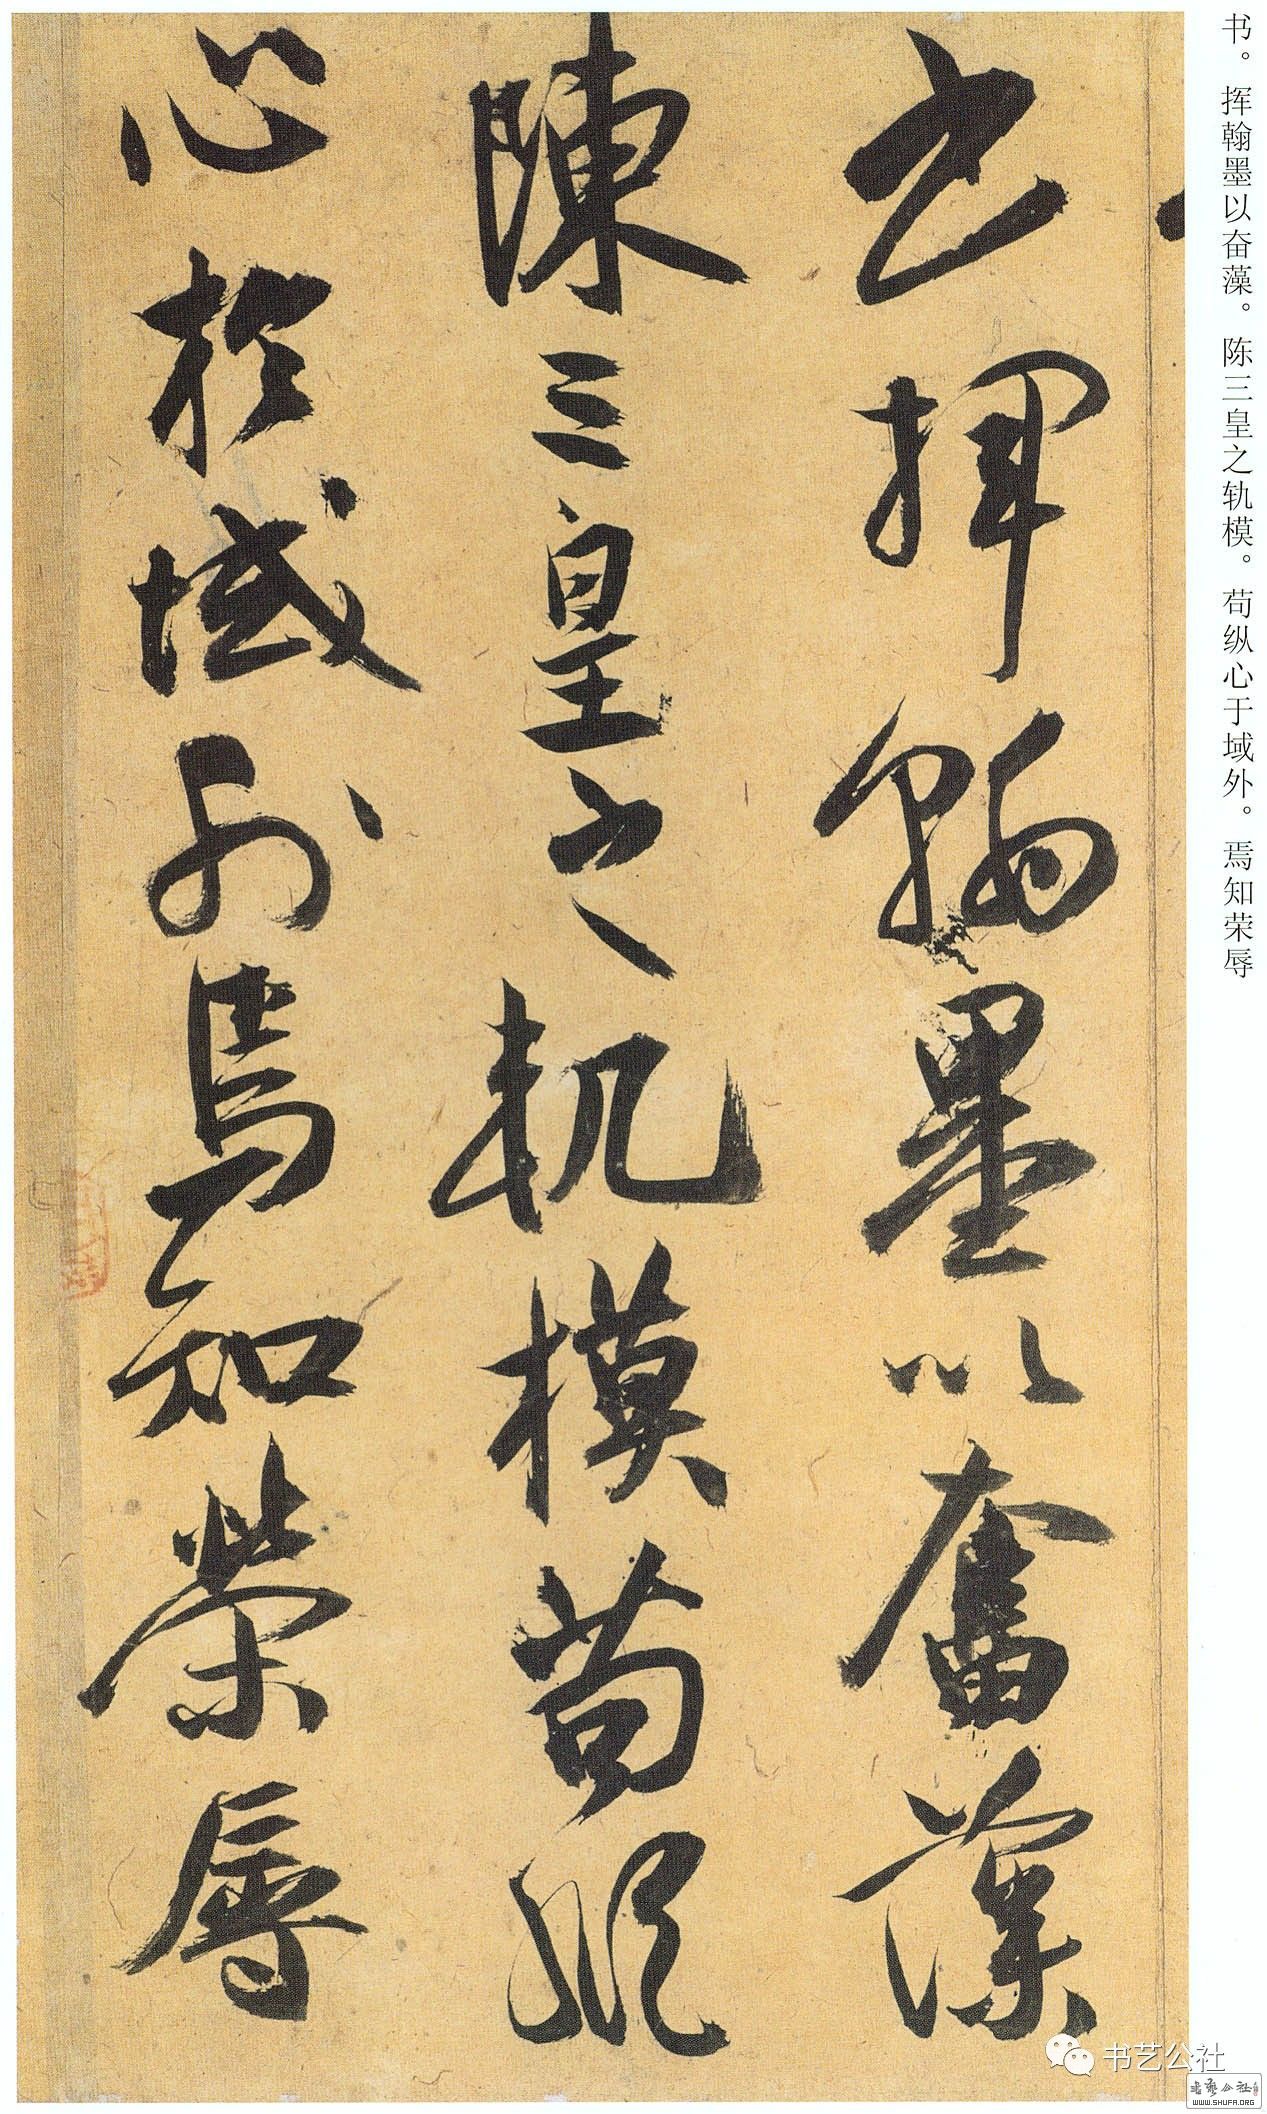 书。挥翰墨以奋藻。陈三皇之轨模。苟纵心于域外。焉知荣辱
书挥翰墨以奮藻
陳三皇之軌模苟縱
心於域外焉知榮辱
书艺公社
书艺公社
WWW.SHUFA.ORG